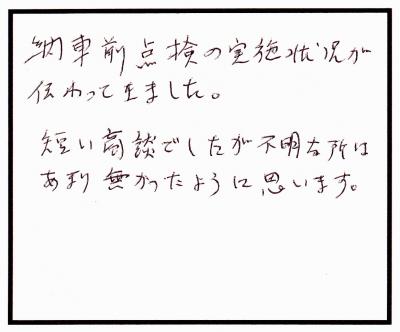 納車前点検の実施状況が
伝わってきました。
短い商談でしたが不明な所は
あまり無かったように思います。